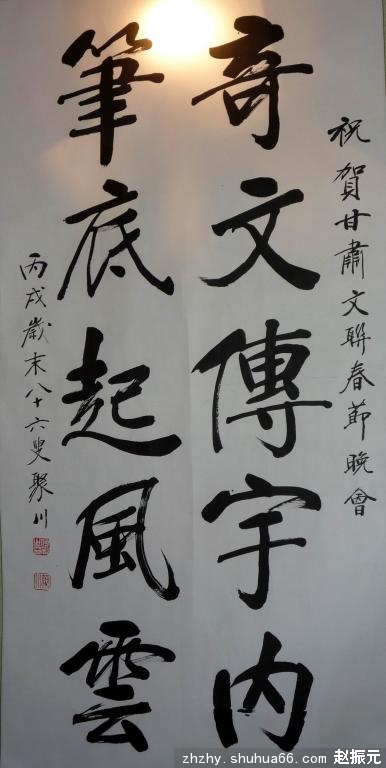 祝賀甘肅文聯春節晚會
奇文傳宇内
筆底起風雲
丙戌歲末八十六叟聚川
zhzhy.shuhua66.com 赵振元